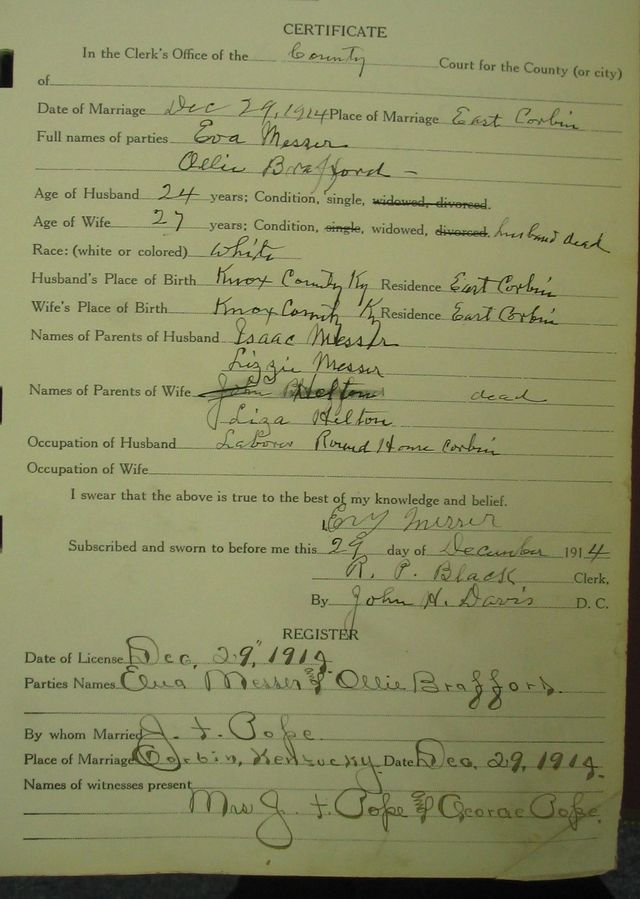 CERTIFICATE
In the Clerk's Office of the County Court for the County (or city)
of
Date of Marriage Dec 29, 1914 Place of Marriage East Corbin
Full names of parties Eva Messer
Ollie Brafford -
Age of Husband 24 years; Condition, single, widowed, divorced.
Age of Wife 27 years; Condition, single, widowed, divorced. husband dead
Race: (white or colored) White
Husband's Place of Birth Knox County Ky Residence East Corbin
Wife's Place of Birth Knox County Ky Residence East Corbin
Names of Parents of Husband Isaac Messer
Lizzie Messer
Names of Parents of Wife John Helton dead
Liza Helton
Occupation of Husband Laborer Round House Corbin
Occupation of Wife
I swear that the above is true to the best of my knowledge and belief.
Messer
Subscribed and sworn to before me this 29 day of December 1914
R. P. Black Clerk,
By John H. Davis D. C.
REGISTER
Date of License Dec, 29, 1914
Parties Names Messer & Ollie Brafford.
By whom Married J. F. Pope.
Place of Marriage Corbin, Kentucky. Date Dec, 29, 1914.
Names of witnesses present
Mrs J. F. Pope & George Pope.